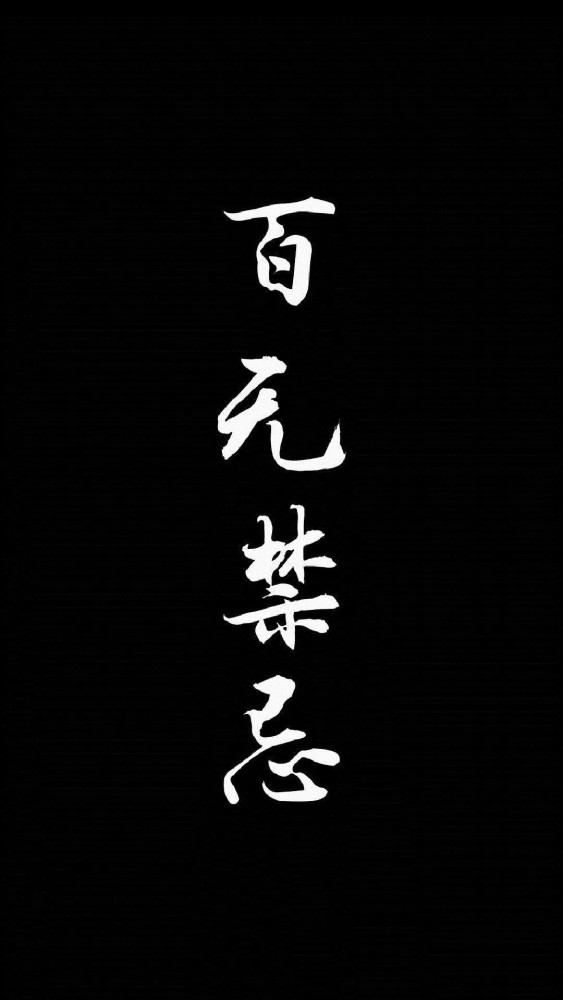 百无禁忌